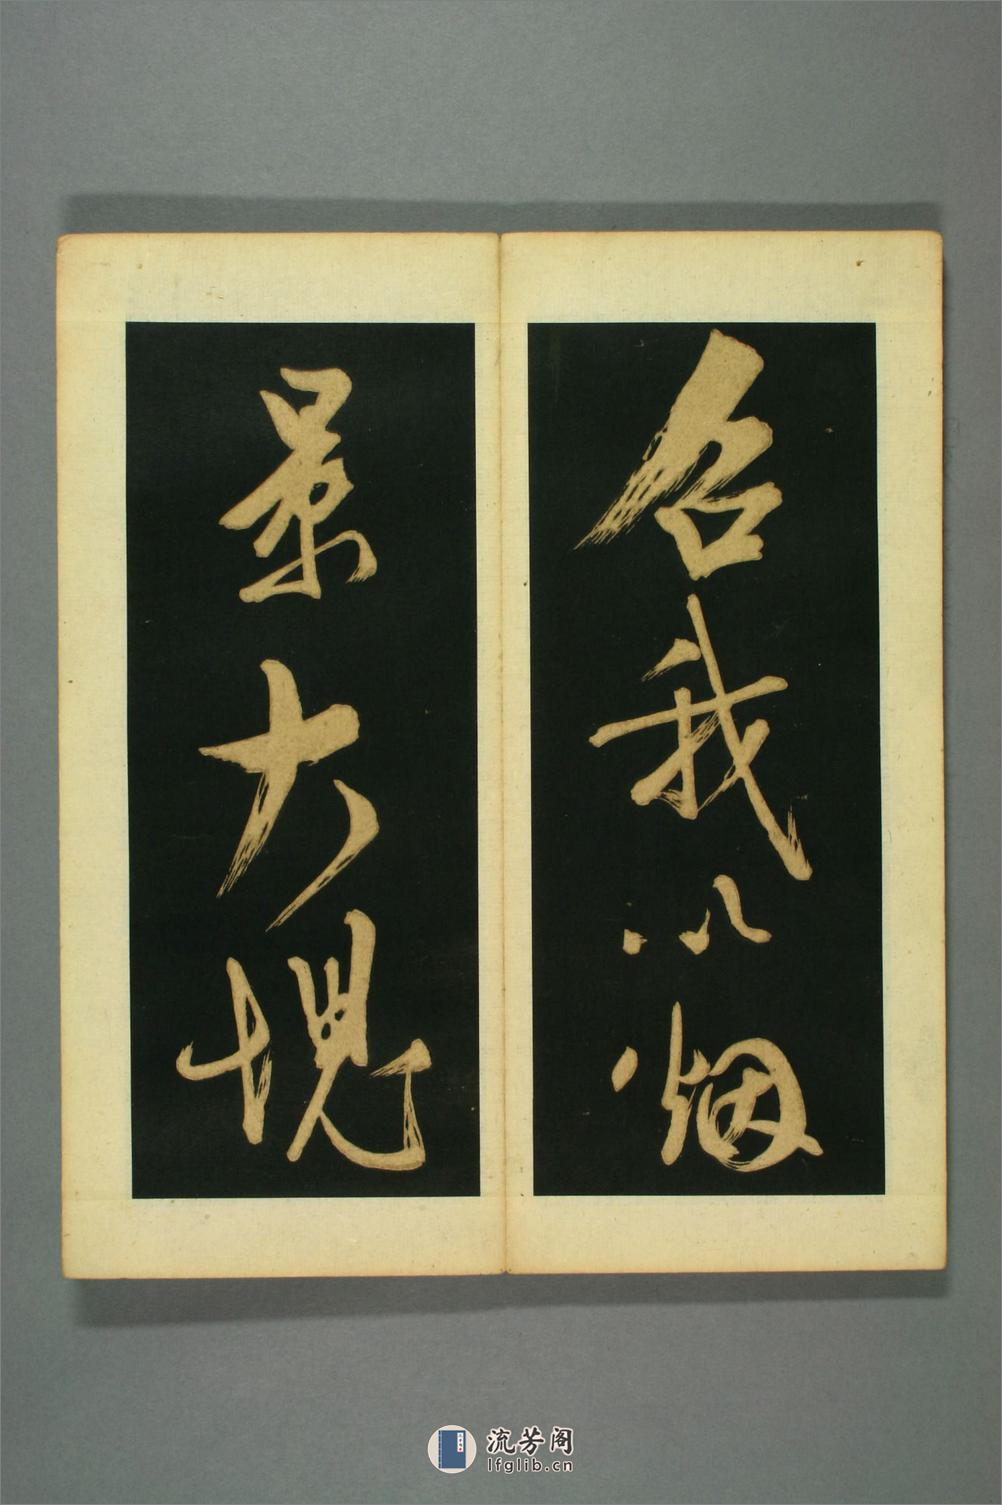 召我以烟
景大塊
流芳阁
lfglib.cn